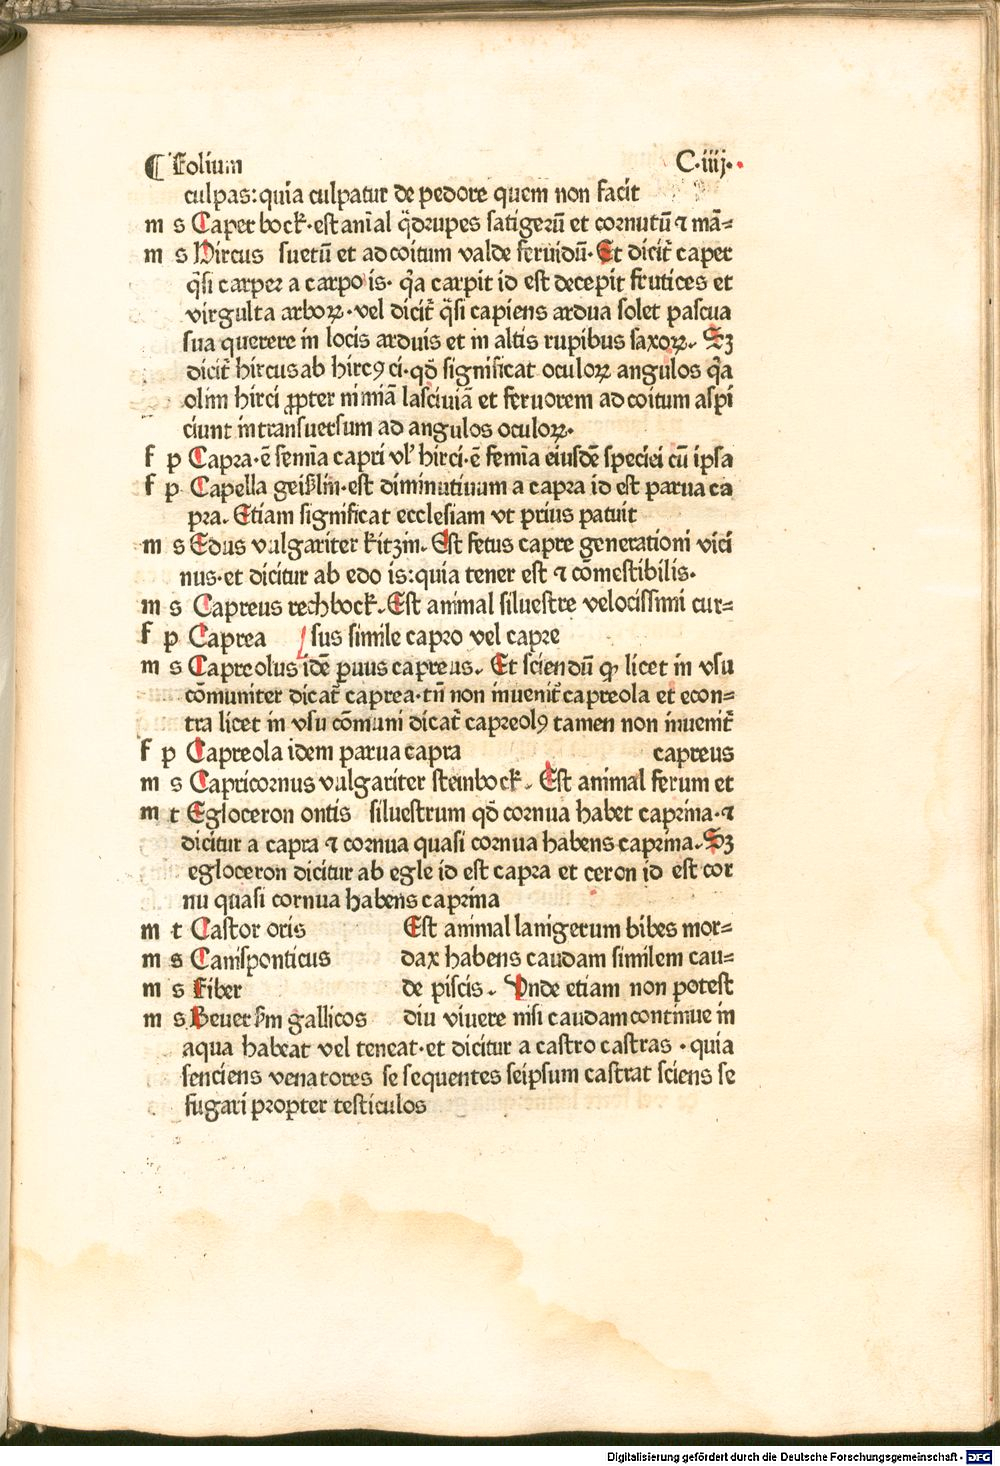 ¶ Folium C.iiij.
culpas: quia culpatur de pedore quem non facit
m s Caper bock. est anīal q̄drupes satigerū et cornutū ⁊ mā=
m s Hircus suetū et ad coitum valde feruidū. Et dicit̄ caper
q̄si carper a carpo is. q̄a carpit id est decepit frutices et
virgulta arboꝝ. vel dicit̄ q̄si capiens ardua solet pascua
sua querere in locis arduis et in altis rupibus saxoꝝ. Sꝫ
dicit̄ hircus ab hircꝯ ci. qd̄ significat oculoꝝ angulos q̄a
olim hirci ꝓpter nimiā lasciuiā et feruorem ad coitum aspi
ciunt in transuersum ad angulos oculoꝝ.
f p Capra. ē femīa capri vl' hirci. ē femīa eiusdē speciei cū ipsa
f p Capella geißlin. est diminutiuum a capra id est parua ca
pra. Etiam significat ecclesiam vt prius patuit
m s Edus vulgariter kitzin. Est fetus capre generationi vici
nus. et dicitur ab edo is: quia tener est ⁊ cōmestibilis.
m s Capreus rechbock. Est animal siluestre velocissimi cur=
f p Caprea sus simile capro vel capre
m s Capreolus idē ꝑuus capreus. Et sciendū ꝙ licet in vsu
cōmuniter dicat̄ caprea. tn̄ non inuenit̄ capreola et econ=
tra licet in vsu cōmuni dicat̄ capreolꝯ tamen non inuenit̄
f p Capreola idem parua capra capreus
m s Capricornus vulgariter steinbock. Est animal ferum et
m t Egloceron ontis siluestrum qd̄ cornua habet caprina. ⁊
dicitur a capra ⁊ cornua quasi cornua habens caprina. Sꝫ
egloceron dicitur ab egle id est capra et ceron id est cor
nu quasi cornua habens caprina
m t Castor oris Est animal lanigerum bibes mor=
m s Canisponticus dax habens caudam similem cau=
m s Fiber de piscis. Vnde etiam non potest
m s Beuer s̄m gallicos diu viuere nisi caudam continue in
aqua habeat vel teneat. et dicitur a castro castras. quia
senciens venatores se sequentes seipsum castrat sciens se
fugari propter testiculos
Digitalisierung gefördert durch die Deutsche Forschungsgemeinschaft - DFG